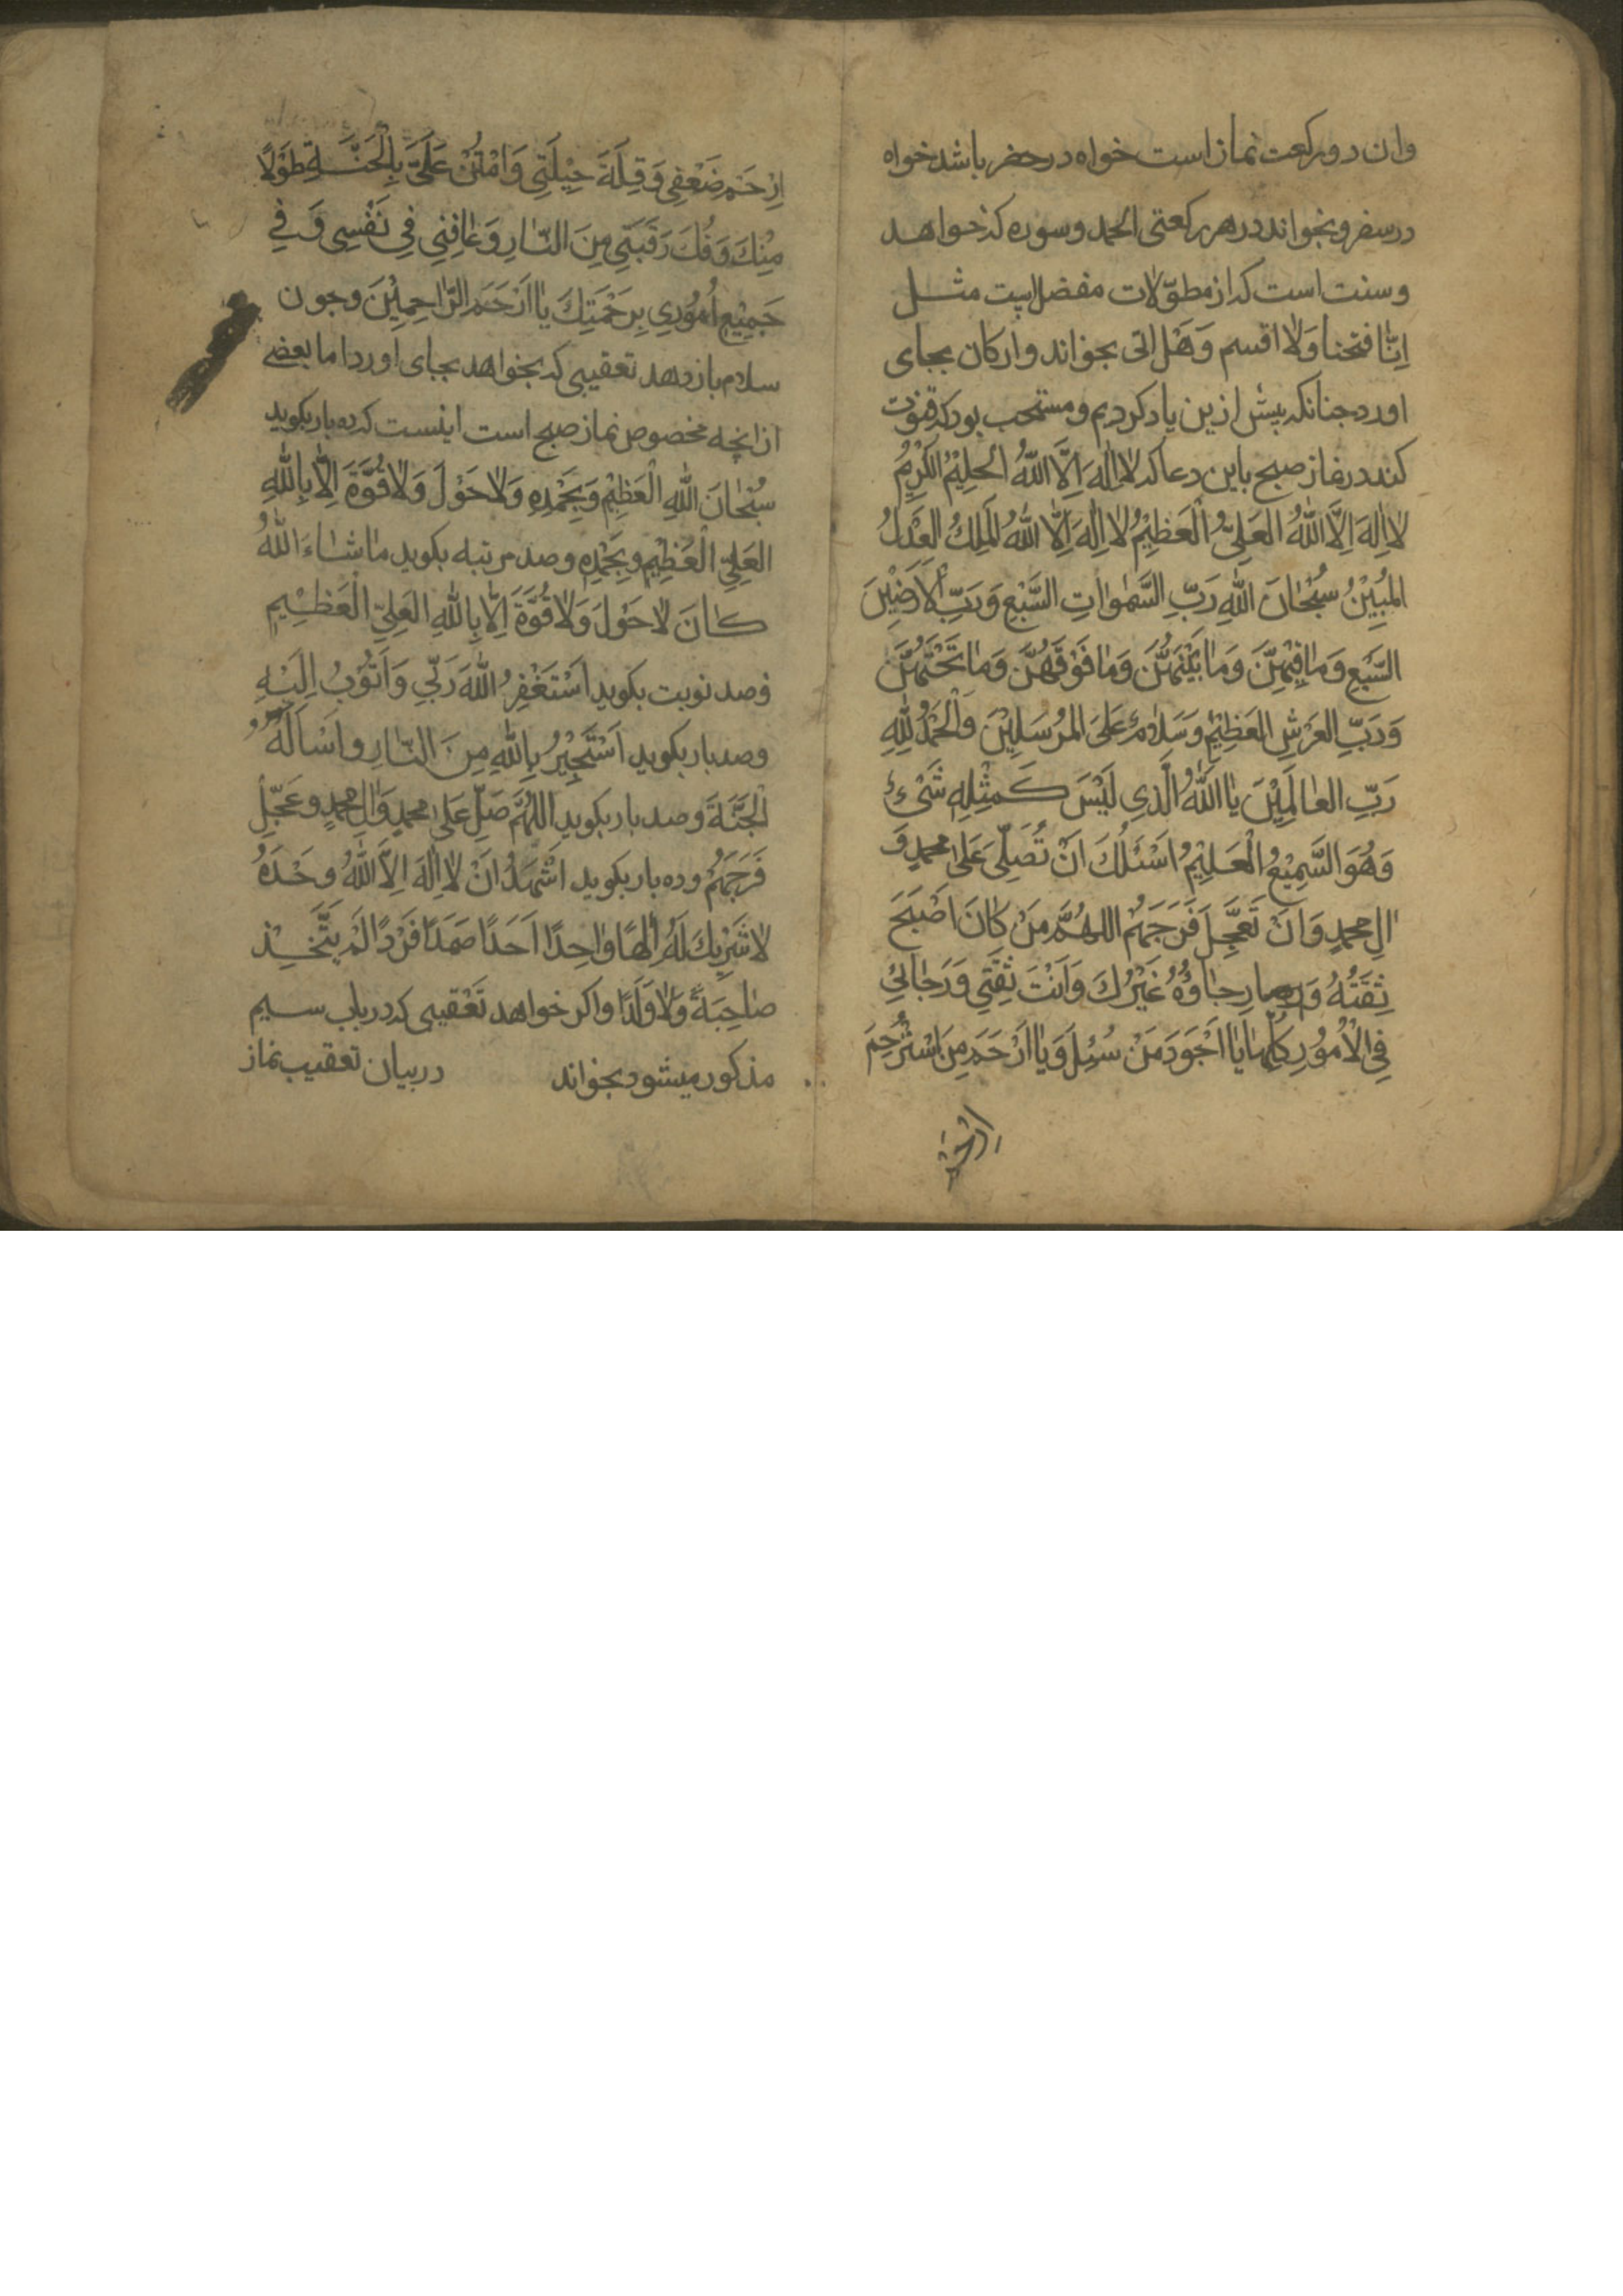 وان دو ركعت نماز است خواه در حضر باشد خواه
در سفر و بخواند در هر ركعتى الحمد و سوره كه خواهد
و سنت است كه از مطوّلات مفصل است مثـــل
اِنّٰا فتحنا وَلٰا اقسم وَهَلْ اتى بخواند و اركان بجاى
اورد جنانكه پيش ازين ياد كرديم و مستحب بود كه قنوت
كند در نماز صبح باين دعا كه لٰا اِلٰهَ اِلَّا اللّٰهُ الْحَلِيْمُ الْكَرِيْمُ
لٰا اِلٰهَ اِلَّا اللّٰهُ الْعَلِيُّ الْعَظِيْمُ لٰا اِلٰهَ اِلَّا اللّٰهُ الْمَلِكُ الْعَدْلُ
الْمُبِيْنُ سُبْحٰانَ اللّٰهِ رَبِّ السَّمٰوٰاتِ السَّبْعِ وَرَبِّ الْاَرَضِيْنَ
السَّبْعِ وَمٰا فِيْهِنَّ وَمٰا بَيْنَهُنَّ وَمٰا فَوْقَهُنَّ وَمٰا تَحْتَهُنَّ
وَرَبِّ الْعَرْشِ الْعَظِيْمِ وَسَلٰامٌ عَلَى الْمُرْسَلِيْنَ وَالْحَمْدُ لِلّٰهِ
رَبِّ الْعٰالَمِيْنَ يٰا اَللّٰهُ الَّذِي لَيْسَ كَمِثْلِهِ شَىْءٌ
وَهُوَ السَّمِيْعُ الْعَلِيْمُ اَسْئَلُكَ اَنْ تُصَلِّىَ عَلىٰ محمدٍ وَ
اٰلِ محمدٍ وَاَنْ تُعَجِّلَ فَرَجَهُمْ اَللّٰهُمَّ مَنْ كٰانَ اَصْبَحَ
ثِقَتُهُ وَ رِجٰاؤُهُ غَيْرُكَ وَاَنْتَ ثِقَتِي وَرَجٰائِي
فِي الْاُمُوْرِ كُلِّهٰا يٰا اَجْوَدَ مَنْ سُئِلَ وَيٰا اَرْحَمَ مَنِ اسْتُرْحِمَ
اِرْحَمْ ضَعْفِي وَقِلَّةَ حِيْلَتِي وَامْنُنْ عَلَيَّ بِالْجَنَّـةِ طَوْلًا
مِنْكَ وَفُكَّ رَقَبَتِي مِنَ النّٰارِ وَعٰافِنِي فِي نَفْسِي وَفِي
جَمِيْعِ اُمُوْرِي بِرَحْمَتِكَ يٰا اَرْحَمَ الرّٰاحِمِيْنَ وجون
سلام باز دهد تعقيبى كه بخواهد بجاى اورد اما بعضى
از انچه مخصوص نماز صبح است اينست كه ده بار بكويد
سُبْحٰانَ اللّٰهِ الْعَظِيْمِ وَبِحَمْدِهِ وَلٰا حَوْلَ وَلٰا قُوَّةَ اِلّٰا بِاللّٰهِ
الْعَلِيِّ الْعَظِيْمِ وَبِحَمْدِهِ و صد مرتبه بكويد مٰا شٰاءَ اللّٰهُ
كٰانَ لٰا حَوْلَ وَلٰا قُوَّةَ اِلّٰا بِاللّٰهِ الْعَلِيِّ الْعَظِـيْمِ
و صد نوبت بكويد اَسْتَغْفِرُ اللّٰهَ رَبِّي وَاَتُوْبُ اِلَيْـهِ
و صد بار بكويد اَسْتَجِيْرُ بِاللّٰهِ مِنَ النّٰارِ وَاَسْاَلُهُ
الْجَنَّةَ و صد بار بكويد اللّٰهُمَّ صَلِّ عَلىٰ محمدٍ وَاٰلِ محمدٍ وَعَجِّلْ
فَرَجَهُمْ و ده بار بكويد اَشْهَدُ اَنْ لٰا اِلٰهَ اِلَّا اللّٰهُ وَحْدَهُ
لٰا شَرِيْكَ لَهُ اِلٰهًا وٰاحِدًا اَحَدًا صَمَدًا فَرْدًا لَمْ يَتَّخِـذْ
صٰاحِبَةً وَلٰا وَلَدًا واكر خواهد تَعْقيبى كه در باب سـيم
مذكور ميشود بخواند در بيان تعقيب نماز